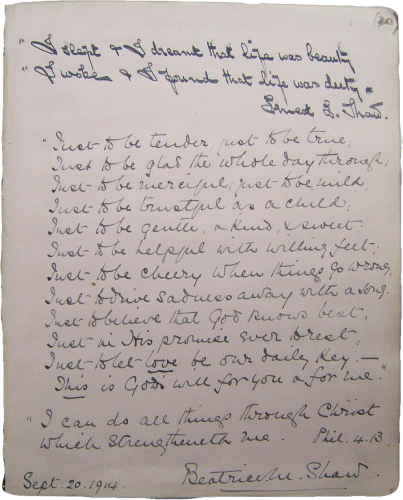 (20)
"I slept & I dreamt that life was beauty
"I woke & I found that life was duty"
Ernest L. Shaw.
"Just to be tender, just to be true;
Just to be glad the whole day through;
Just to be merciful; just to be mild,
Just to be trustful as a child;
Just to be gentle, & kind, & sweet;
Just to be helpful with willing feet;
Just to be cheery when things go wrong,
Just to drive sadness away with a song.
Just to believe that God knows best,
Just in His promise ever to rest;
Just to let love be our daily key.—
This is God's will for you & for me."
"I can do all things through Christ
which strengtheneth me. Phil. 4.13.
Sept. 20. 1914. Beatrice M. Shaw.